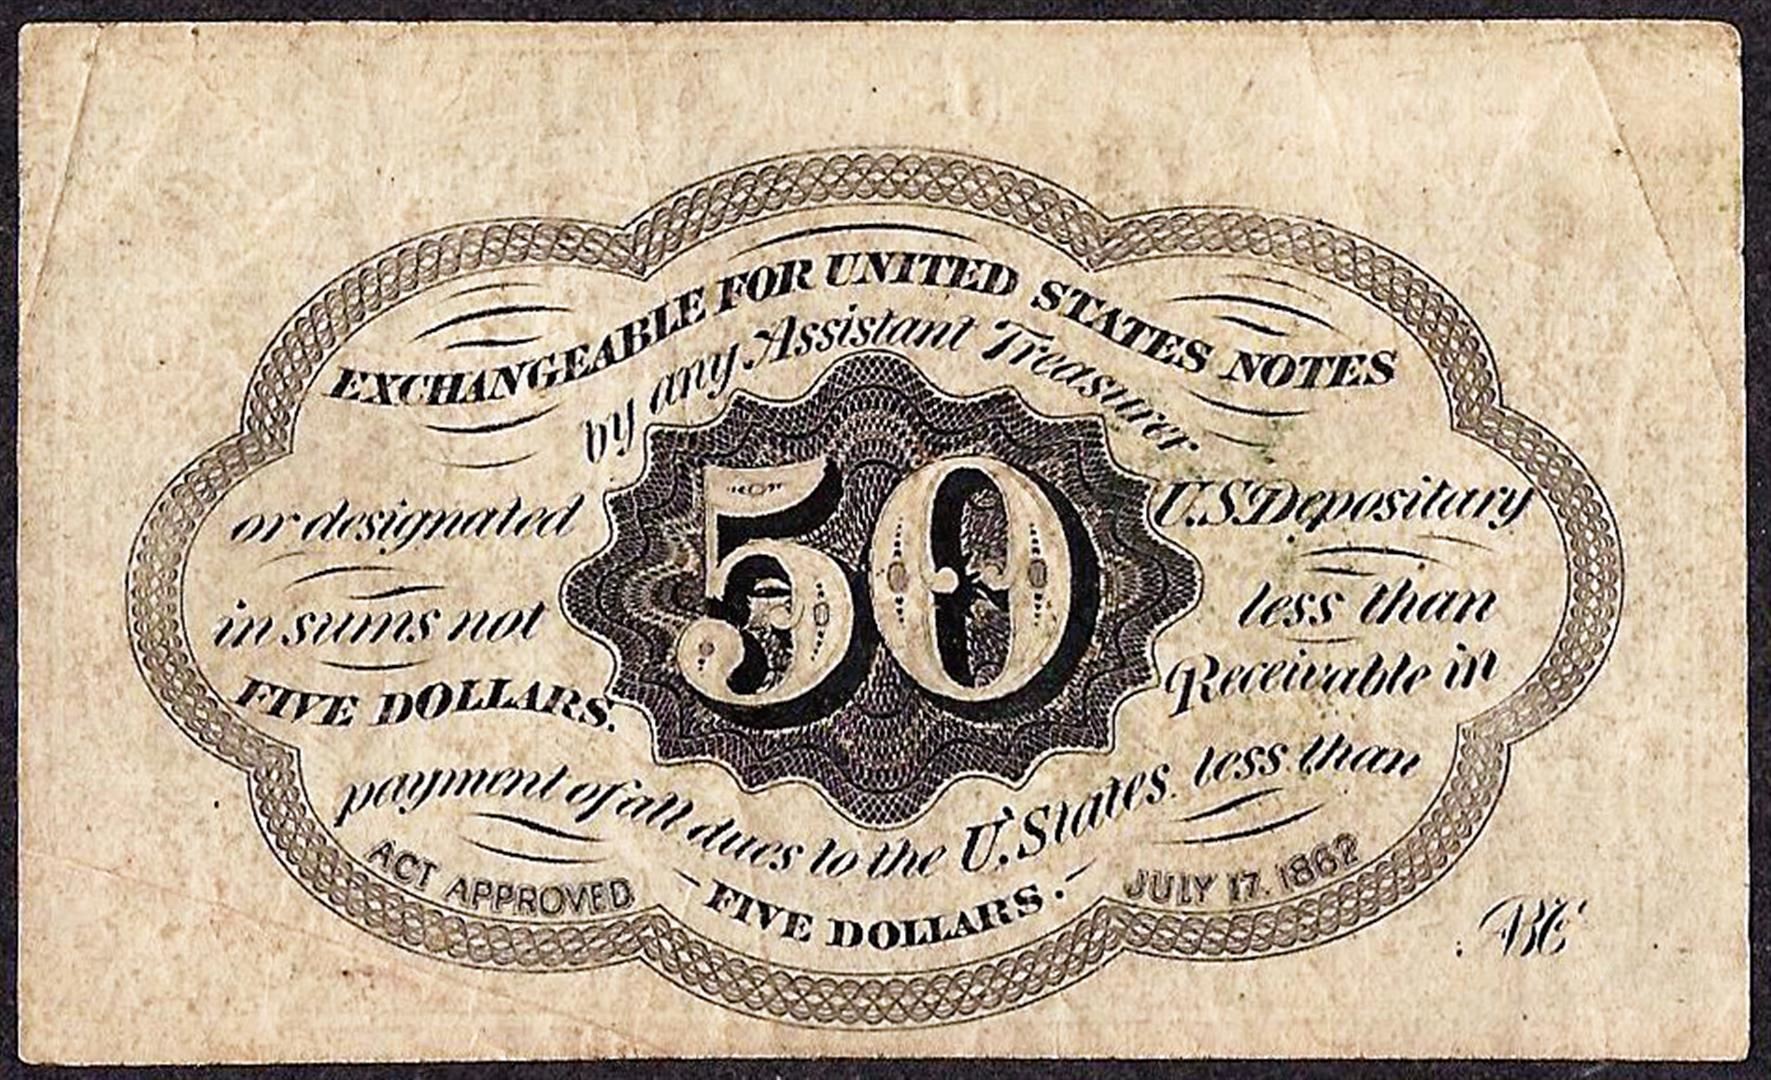 EXCHANGEABLE FOR UNITED STATES NOTES
by any Assistant Treasurer
or designated U.S. Depositary
in sums not less than
FIVE DOLLARS. Receivable in
payment of all dues to the U. States less than
FIVE DOLLARS.
ACT APPROVED JULY 17. 1862
50